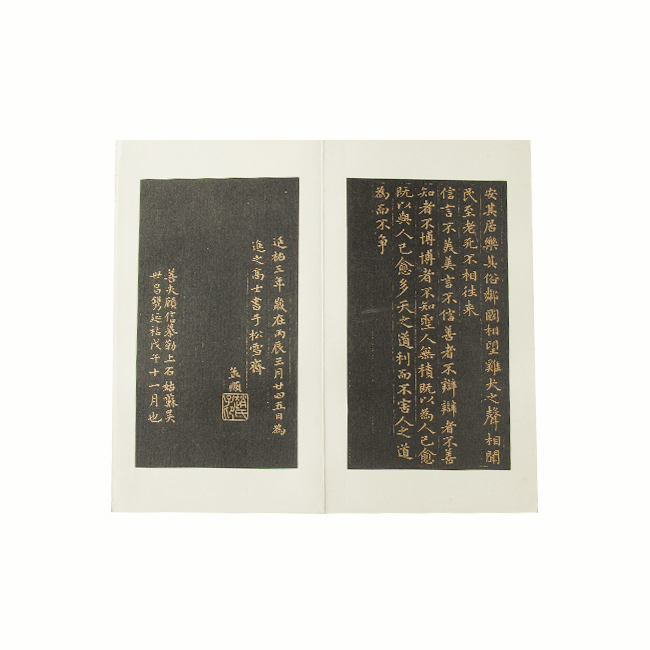 安其居樂其俗鄰國相望雞犬之聲相聞
民至老死不相往来
信言不美美言不信善者不辯辯者不善
知者不博博者不知聖人無積既以為人己愈
既以與人己愈多天之道利而不害人之道
為而不争
延祐三年歲在丙辰三月廿四五日為
進之高士書于松雪齋
孟頫
趙氏子昂
善夫顧信摹勒上石姑蘇吴
世昌鐫延祐戊午十一月也